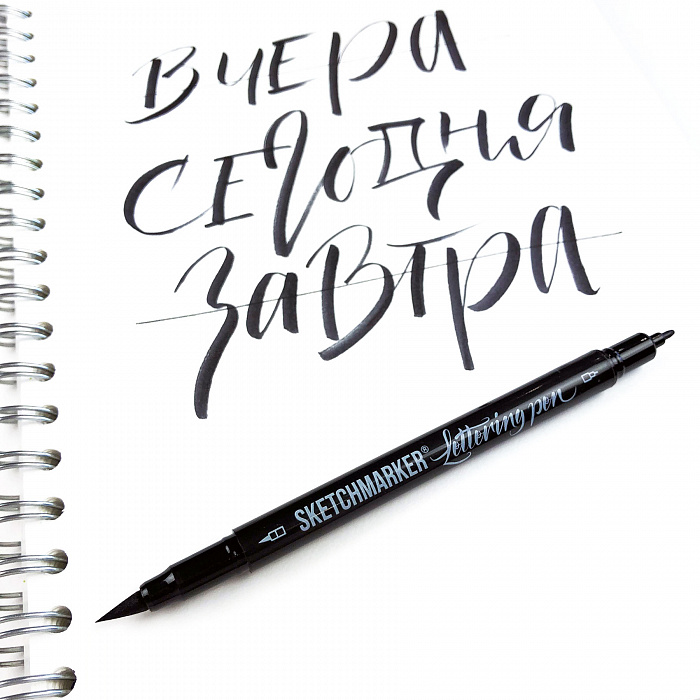 вчера
сегодня
завтра
SKETCHMARKER® Lettering pen